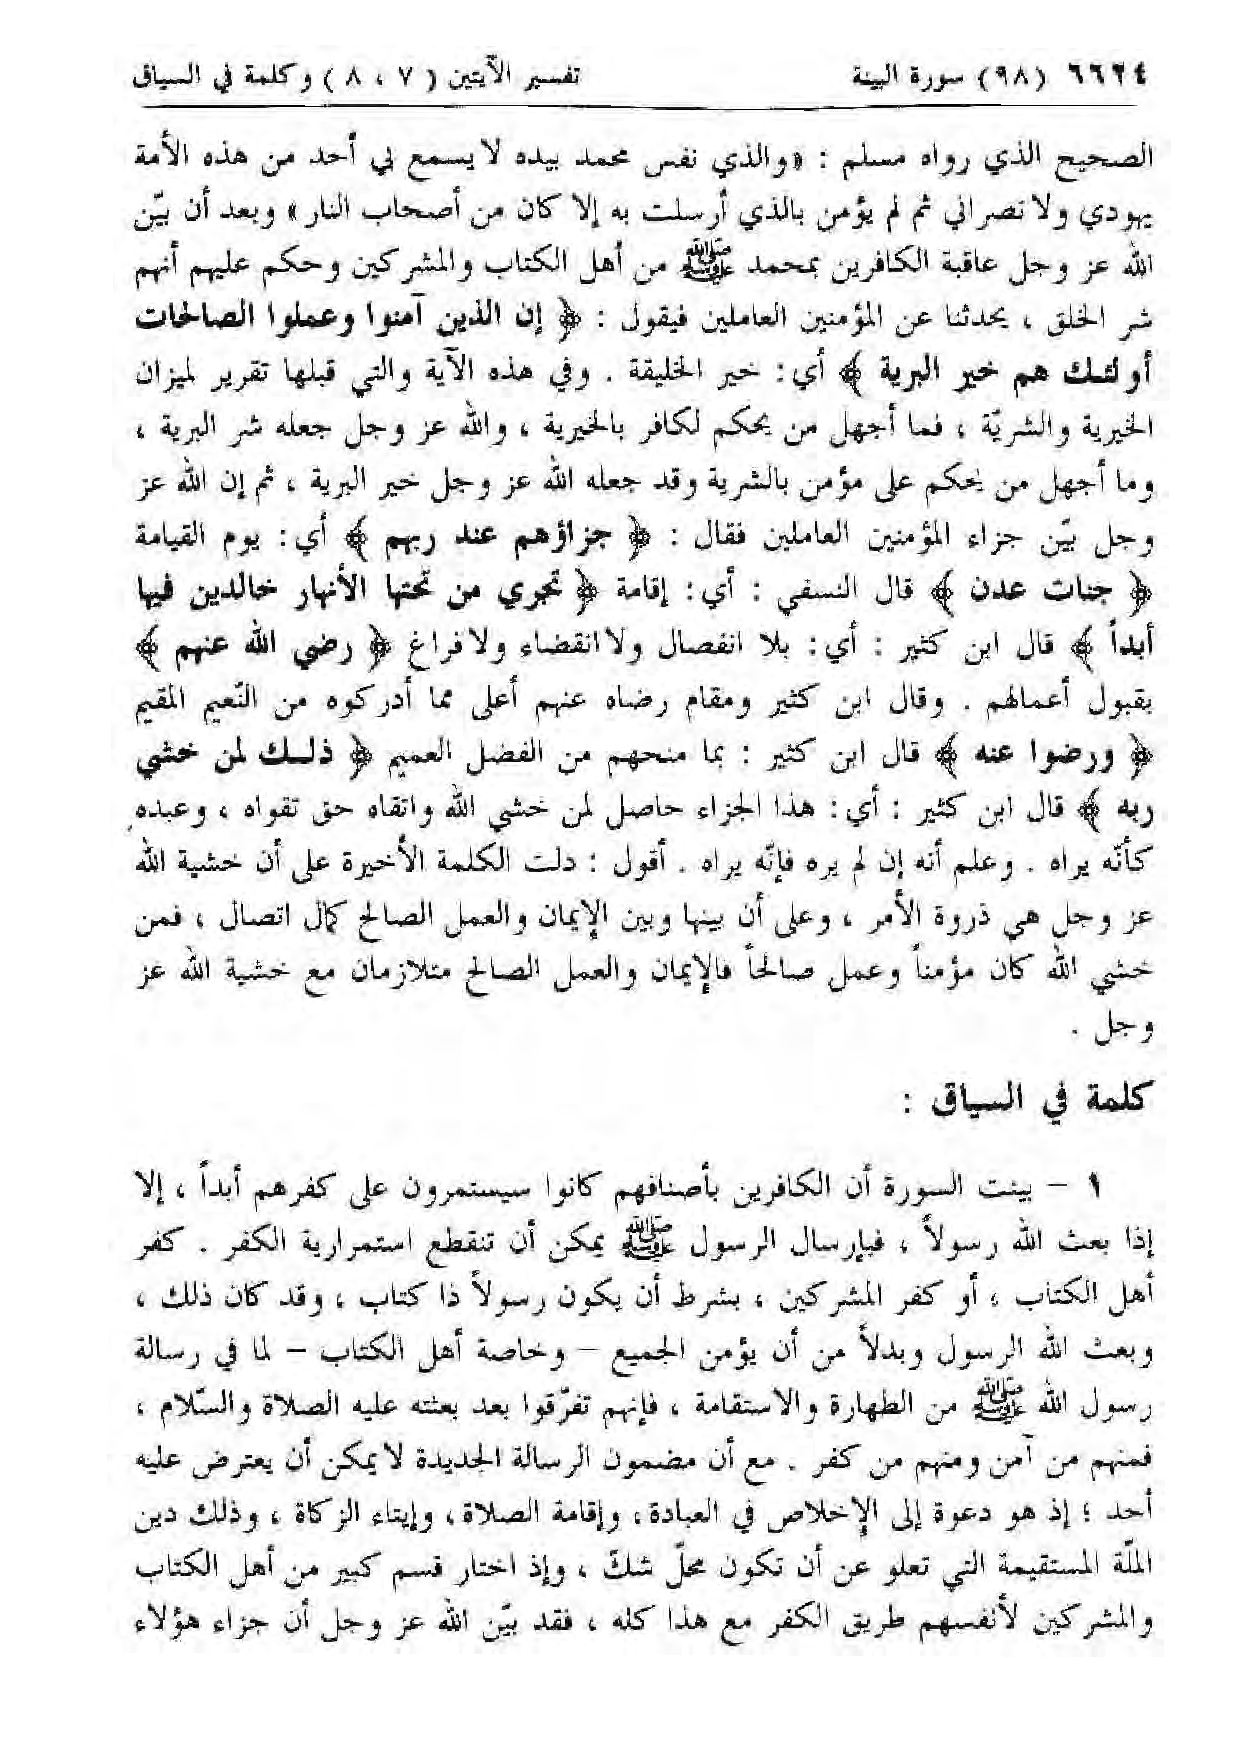 ٦٦٢٤ (٩٨) سورة البينة تفسير الآيتين ( ٧ ، ٨ ) وكلمة في السياق
الصحيح الذي رواه مسلم : « والذي نفس محمد بيده لا يسمع بي أحد من هذه الأمة
يهودي ولا نصراني ثم لم يؤمن بالذي أرسلت به إلا كان من أصحاب النار » وبعد أن بيّن
الله عز وجل عاقبة الكافرين بمحمد ﷺ من أهل الكتاب والمشركين وحكم عليهم أنهم
شر الخلق ، يحدثنا عن المؤمنين العاملين فيقول : ﴿ إن الذين آمنوا وعملوا الصالحات
أولئك هم خير البرية ﴾ أي : خير الخليقة . وفي هذه الآية والتي قبلها تقرير لميزان
الخيرية والشريّة ، فما أجهل من يحكم لكافر بالخيرية ، والله عز وجل جعله شر البرية ،
وما أجهل من يحكم على مؤمن بالشرية وقد جعله الله عز وجل خير البرية ، ثم إن الله عز
وجل بيّن جزاء المؤمنين العاملين فقال : ﴿ جزاؤهم عند ربهم ﴾ أي : يوم القيامة
﴿ جنات عدن ﴾ قال النسفي : أي : إقامة ﴿ تجري من تحتها الأنهار خالدين فيها
أبداً ﴾ قال ابن كثير : أي : بلا انفصال ولا انقضاء ولا فراغ ﴿ رضي الله عنهم ﴾
بقبول أعمالهم . وقال ابن كثير ومقام رضاه عنهم أعلى مما أدركوه من النّعيم المقيم
﴿ ورضوا عنه ﴾ قال ابن كثير : بما منحهم من الفضل العميم ﴿ ذلك لمن خشي
ربه ﴾ قال ابن كثير : أي : هذا الجزاء حاصل لمن خشي الله واتقاه حق تقواه ، وعبده
كأنّه يراه . وعلم أنه إن لم يره فإنّه يراه . أقول : دلت الكلمة الأخيرة على أن خشية الله
عز وجل هي ذروة الأمر ، وعلى أن بينها وبين الإيمان والعمل الصالح كمال اتصال ، فمن
خشي الله كان مؤمناً وعمل صالحاً فالإيمان والعمل الصالح متلازمان مع خشية الله عز
وجل .
كلمة في السياق :
١ – بينت السورة أن الكافرين بأصنافهم كانوا سيستمرون على كفرهم أبداً ، إلا
إذا بعث الله رسولاً ، فبإرسال الرسول ﷺ يمكن أن تنقطع استمرارية الكفر . كفر
أهل الكتاب ، أو كفر المشركين ، بشرط أن يكون رسولاً ذا كتاب ، وقد كان ذلك ،
وبعث الله الرسول وبدلاً من أن يؤمن الجميع – وخاصة أهل الكتاب – لما في رسالة
رسول الله ﷺ من الطهارة والاستقامة ، فإنهم تفرّقوا بعد بعثته عليه الصلاة والسّلام ،
فمنهم من آمن ومنهم من كفر . مع أن مضمون الرسالة الجديدة لا يمكن أن يعترض عليه
أحد ؛ إذ هو دعوة إلى الإخلاص في العبادة ، وإقامة الصلاة ، وإيتاء الزكاة ، وذلك دين
الملّة المستقيمة التي تعلو عن أن تكون محلّ شكّ ، وإذ اختار قسم كبير من أهل الكتاب
والمشركين لأنفسهم طريق الكفر مع هذا كله ، فقد بيّن الله عز وجل أن جزاء هؤلاء